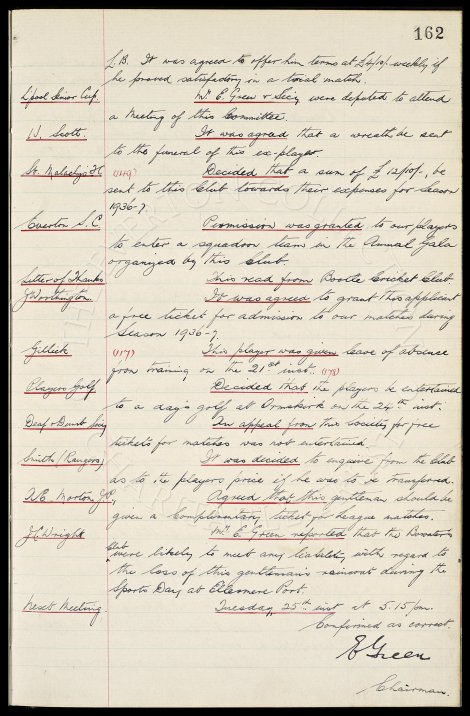 162
L.B. It was agreed to offer him terms at £4/10/- weekly if
he proved satisfactory in a trial match.
Lpool Senior Cup. Mr. E. Green & Secy were deputed to attend
a Meeting of this Committee.
W. Scott. It was agreed that a wreath be sent
to the funeral of this ex-player.
St. Malachys FC (149) Decided that a sum of £12/10/-, be
sent to this Club towards their expenses for season
1936-7.
Everton S.C. Permission was granted to our players
to enter a squadron team in the Annual Gala
organized by this Club.
Letter of Thanks This read from Bootle Cricket Club.
J Worthington. It was agreed to grant this applicant
a free ticket for admission to our matches during
Season 1936-7
Gillick (179) This player was given leave of absence
from training on the 21st inst. (178)
Players Golf Decided that the players be entertained
to a day's golf at Ormskirk on the 24th inst.
Deaf & Dumb Socy An appeal from this Society for free
tickets for matches was not entertained.
Smith (Rangers) It was decided to enquire from the Club
as to the players price if he was to be transferred.
Morton J.P. Agreed that this gentleman should be
given a Complimentary ticket for league matches.
J.C. Wright Mr. E. Green reported that the Bovators
Club were likely to meet any liability with regard to
the loss of this gentleman's raincoat during the
Sports Day at Ellesmere Port.
Next Meeting Tuesday, 25th inst at 5.15 pm.
Confirmed as correct.
E Green
Chairman.